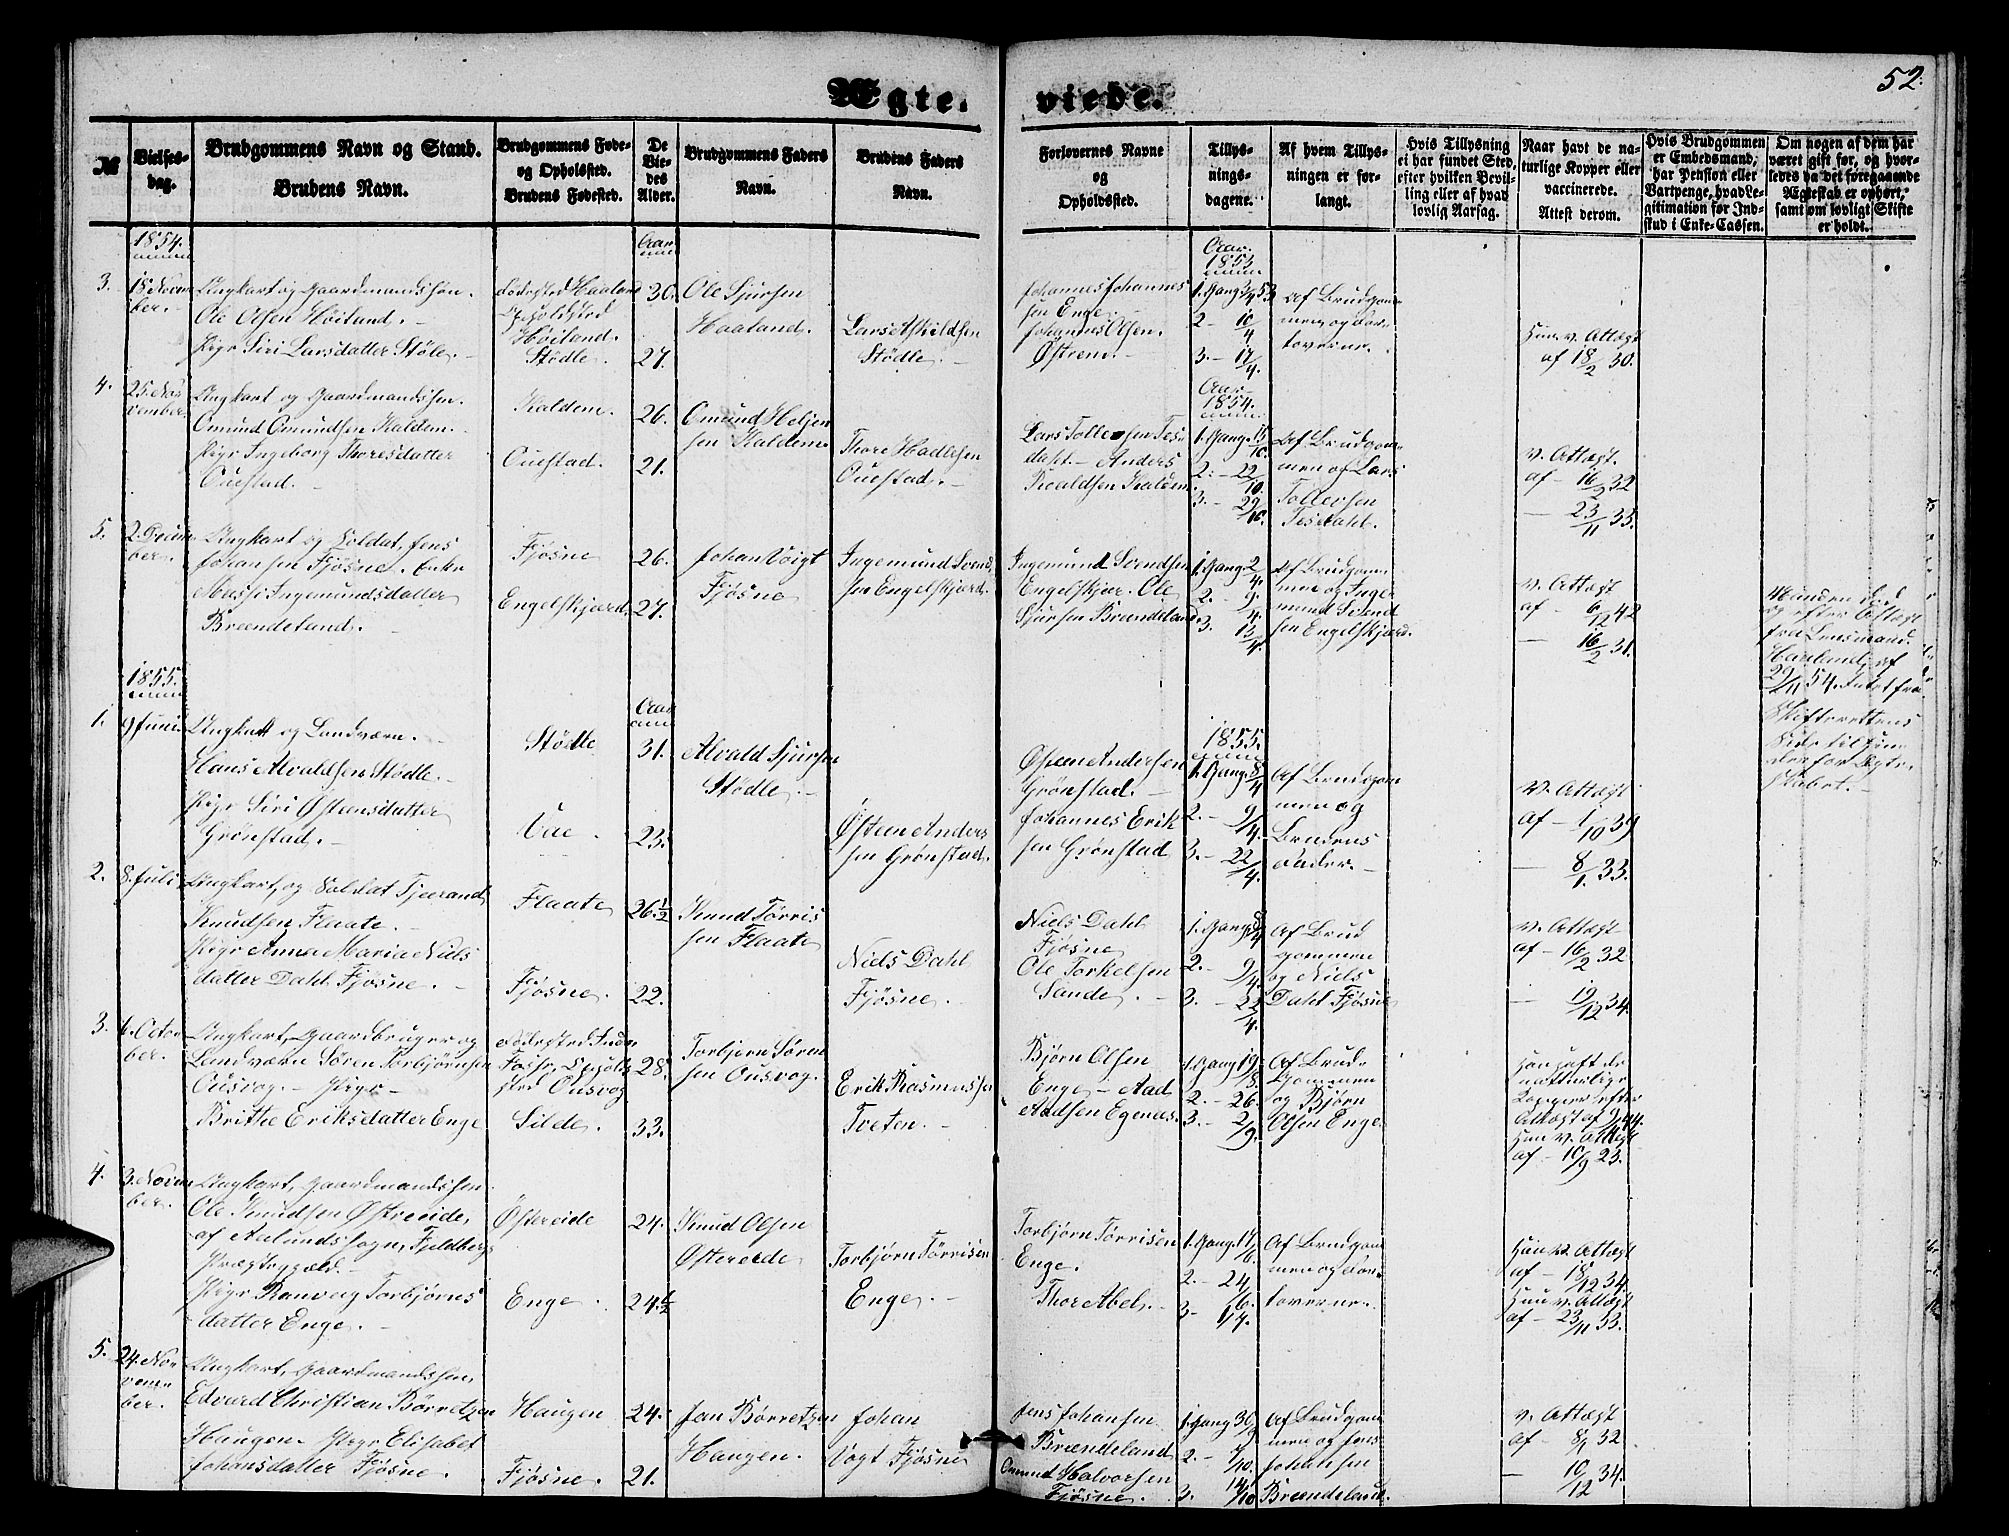 52.
Ægte-
viede.
№
Vielses-
dag.
Brudgommens Navn og Stand.
Brudens Navn.
Brudgommens Føde-
og Opholdsted.
Brudens Fødested.
De
Vie-
des
Alder.
Brudgommens Faders
Navn.
Brudens Faders
Navn.
Forlovernes Navne
og
Opholdssted.
Tillys-
nings-
dagene.
Af hvem Tillys-
ningen er for-
langt.
Hvis Tillysning
ei har fundet Sted,
efter hvilken Bevil-
ling eller af hvad
lovlig Aarsag.
Naar havt de na-
turlige Kopper eller
vaccinerede.
Attest derom.
Hvis Brudgommen
er Embedsmand,
har Pension eller
Vartpenge, hvad Le-
gitimation for Ind-
skud i Enke-Cassen.
Om nogen af dem har
været gift før, og hvor-
ledes da det foregaaende
Ægteskab er ophørt,
samt om lovligt Skifte
er holdt.
1854.
Aar
3.
18 Novem
ber.
Ungkarl og Gaardmandssøn.
Ole Olsen Høiland.
Pige Siri Larsdatter Stöle.
Födested Haaland
Høiland.
Stödle.
30.
27.
Ole Sjursen
Haaland.
Lars Askildsen
Stödle.
Johannes Johannes
sen Enge.
Johannes Olsen.
Østrem.
Aar.
1853
1. Gang 3/4 53
2 - 10/4
3. - 17/4.
Af Brudgom
men og For-
loverne.
Hun v. Attest
af 18/2 30.
4.
25. No
vember
Ungkarl og Gaardmandssøn.
Omund Omundsen Kaldem.
Pige Ingeborg Thoresdatter
Ouestad.
Kaldem.
Ouestad.
26.
21.
Omund Heljes
sen Kaldem
Thore Hadlesen
Ouestad.
Lars Tollefsen Tes
dahl - Anders
Roaldsen Kaldem.
Aar
1854.
1. Gang 15/10.
2. - 22/10.
3. - 29/10.
Af Brudgom
men og Lars
Tollefsen
Tesdahl.
v. Attest.
af - 16/2 32
- 23/11 33.
5.
2. Decem
ber.
Ungkarl og Soldat, Jens
Johansen Fjøsne. Enke
Ingemundsdatter
Brændeland.
Fjøsne
Engelskjærd.
26.
27.
Johan Voigt
Fjøsne
Ingemund Svend
sen Engelskjærd.
Ingemund Svendsen
Engelskjær. Ole
Sjursen Brændeland.
1. Gang 2/4.
2. - 9/4.
3. 13/4.
Af Brudgom
men og Inge
mund Svend
sen Engelskjærd.
v. Attest
af - 6/12 42
- 16/2 31.
Manden död
og efter Attest
fra Lensmand
Haaland, af
29/11 54. Intet fra
Skifterettens
Side til Hin-
der for Ægte-
skabet.
1855.
Aar
1.
9 Juni.
Ungkarl og Landværn.
Hans Alvaldsen Stödle.
Pige Siri Østensdatter
Grönstad.
Stödle
Vae.
31.
23.
Alvald Sjursen
Stödle.
Østen Anders
sen Grönstad.
Østen Andersen
Grönstad.
Johannes Erik
sen Grønstad
1855.
1. Gang 8/4
2. - 9/4.
3. - 22/4.
Af Brudgom
men og
Brudens
Fader.
v. Attest
af - 1/10 39
- 8/1. 33.
2.
8. Juli
Ungkarl, og Soldat Tjerand
Knudsen Flaate.
Pige Anna Maria Niels
datter Dahl Fjøsne.
Flaate
Fjøsne.
26.1/2
22.
Knud Törris
sen Flaate
Niels Dahl
Fjøsne.
Niels Dahl
Fjøsne
Ole Torkelsen
Sande.
1. Gang 8/4
2. - 9/4.
3. - 22/4.
Af Brud
gommen
og Niels
Dahl Fjøsne
v. Attest
af - 16/2 32
- 19/12 34.
3.
4. Octo
ber.
Ungkarl, Gaardbruger og
Landværn Søren Torbjørnsen
Ousvog. - Pige
Brithe Eriksdatter Enge
Ousvog
Silde.
28.
33.
Torbjørn Søren
sen Ousvog.
Erik Rasmussen
Tveten.
Bjørn Olsen
Enge - Aad
Aadsen Egenæs.
1. Gang 19/8.
2. - 26.
3. - 2/9.
Af Brud-
gommen
og Bjørn
Olsen Enge
Han haft de
naturlige
Kopper efter
Attest af 9/ 44.
Hun v. Attest
af - 10/9 23.
4.
3. Novem
ber.
Ungkarl, Gaardmandssøn.
Ole Knudsen Østreeide,
af Sogn, Fjeldbergs
Præstegjeld.
Pige Ranveig Torbjørns
datter Enge.
Østereide
Enge.
24.
24.1/2
Knud Olsen
Østereide
Torbjørn Törrisen
Enge.
Torbjørn Törrisen
Enge.
Thore Abel.
1. Gang 17/6.
2. - 24/6.
3. 1/7.
Af Brudgom
men og For-
loverne.
Han v. Attest
af - 18/12 34.
Hun v. Attest
af - 23/11 33.
5.
24. No
vem
ber.
Ungkarl, Gaardmandssøn,
Edvard Christian Børretzen
Haugen. Pige Elisabet
Johansdatter Fjøsne.
Haugen
Fjøsne.
24.
21.
Jan Børretzen
Haugen.
Johan
Vogt Fjøsne
Jens Johansen
Brændeland
Omund Halvorsen
Fjøsne.
1. Gang 30/9
2. - 7/10.
3. 14/10
Af Brudgom
men og Jens
Johansen
Brændeland.
v. Attest
af - 8/1 32
- 10/12 34.